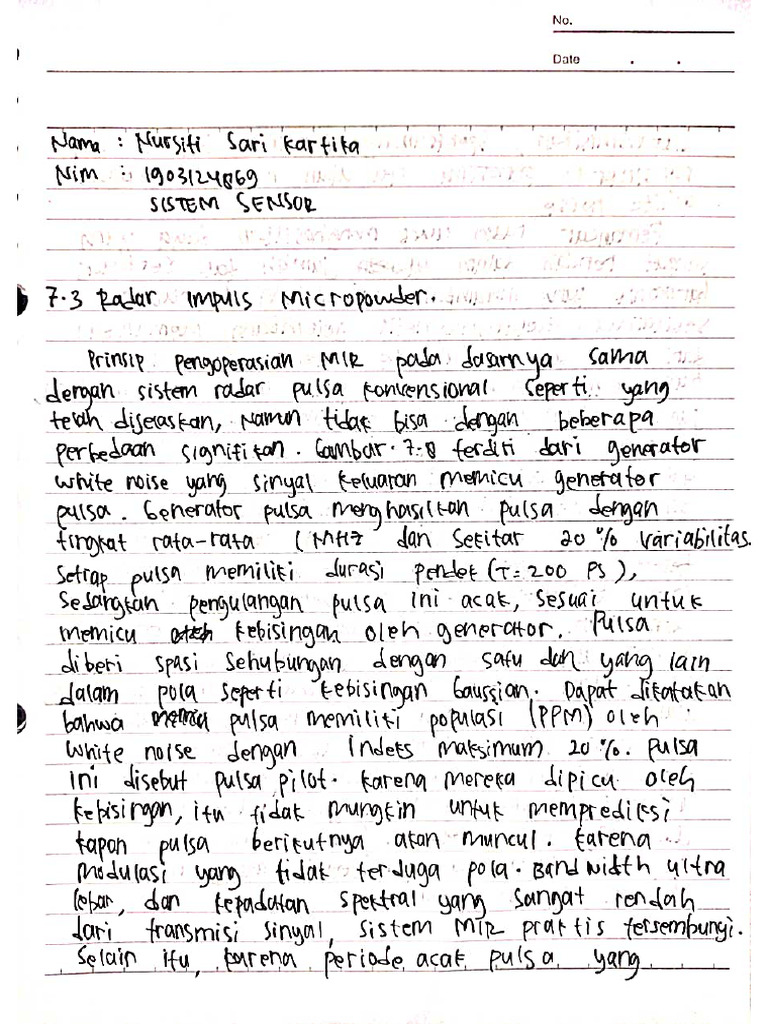 No.
Date . .
Nama : Nursiti Sari Kartika
Nim : 1903124869
SISTEM SENSOR
7.3 Radar Impuls Micropowder.
Prinsip pengoperasian MIR pada dasarnya sama
dengan sistem radar pulsa konvensional seperti yang
telah dijelaskan, Namun tidak bisa dengan beberapa
perbedaan signifikan. Gambar. 7.8 terdiri dari generator
white noise yang sinyal keluaran memicu generator
pulsa. Generator pulsa menghasilkan pulsa dengan
tingkat rata-rata (MHz dan Sekitar 20 % variabilitas.
Setiap pulsa memiliki durasi pendek (T = 200 Ps),
Sedangkan pengulangan pulsa ini acak, sesuai untuk
memicu kebisingan oleh generator. Pulsa
diberi spasi sehubungan dengan satu dan yang lain
dalam pola seperti kebisingan Gaussian. Dapat dikatakan
bahwa pulsa memiliki populasi (PPM) oleh
white noise dengan Indeks maksimum 20 %. pulsa
ini disebut pulsa pilot. karena mereka dipicu oleh
kebisingan, itu tidak mungkin untuk memprediksi
kapan pulsa berikutnya akan muncul. karena
modulasi yang tidak terduga pola. Bandwidth ultra
lebar, dan kepadatan spektral yang sangat rendah
dari transmisi sinyal, sistem MIR praktis tersembungi.
Selain itu, karena periode acak pulsa yang